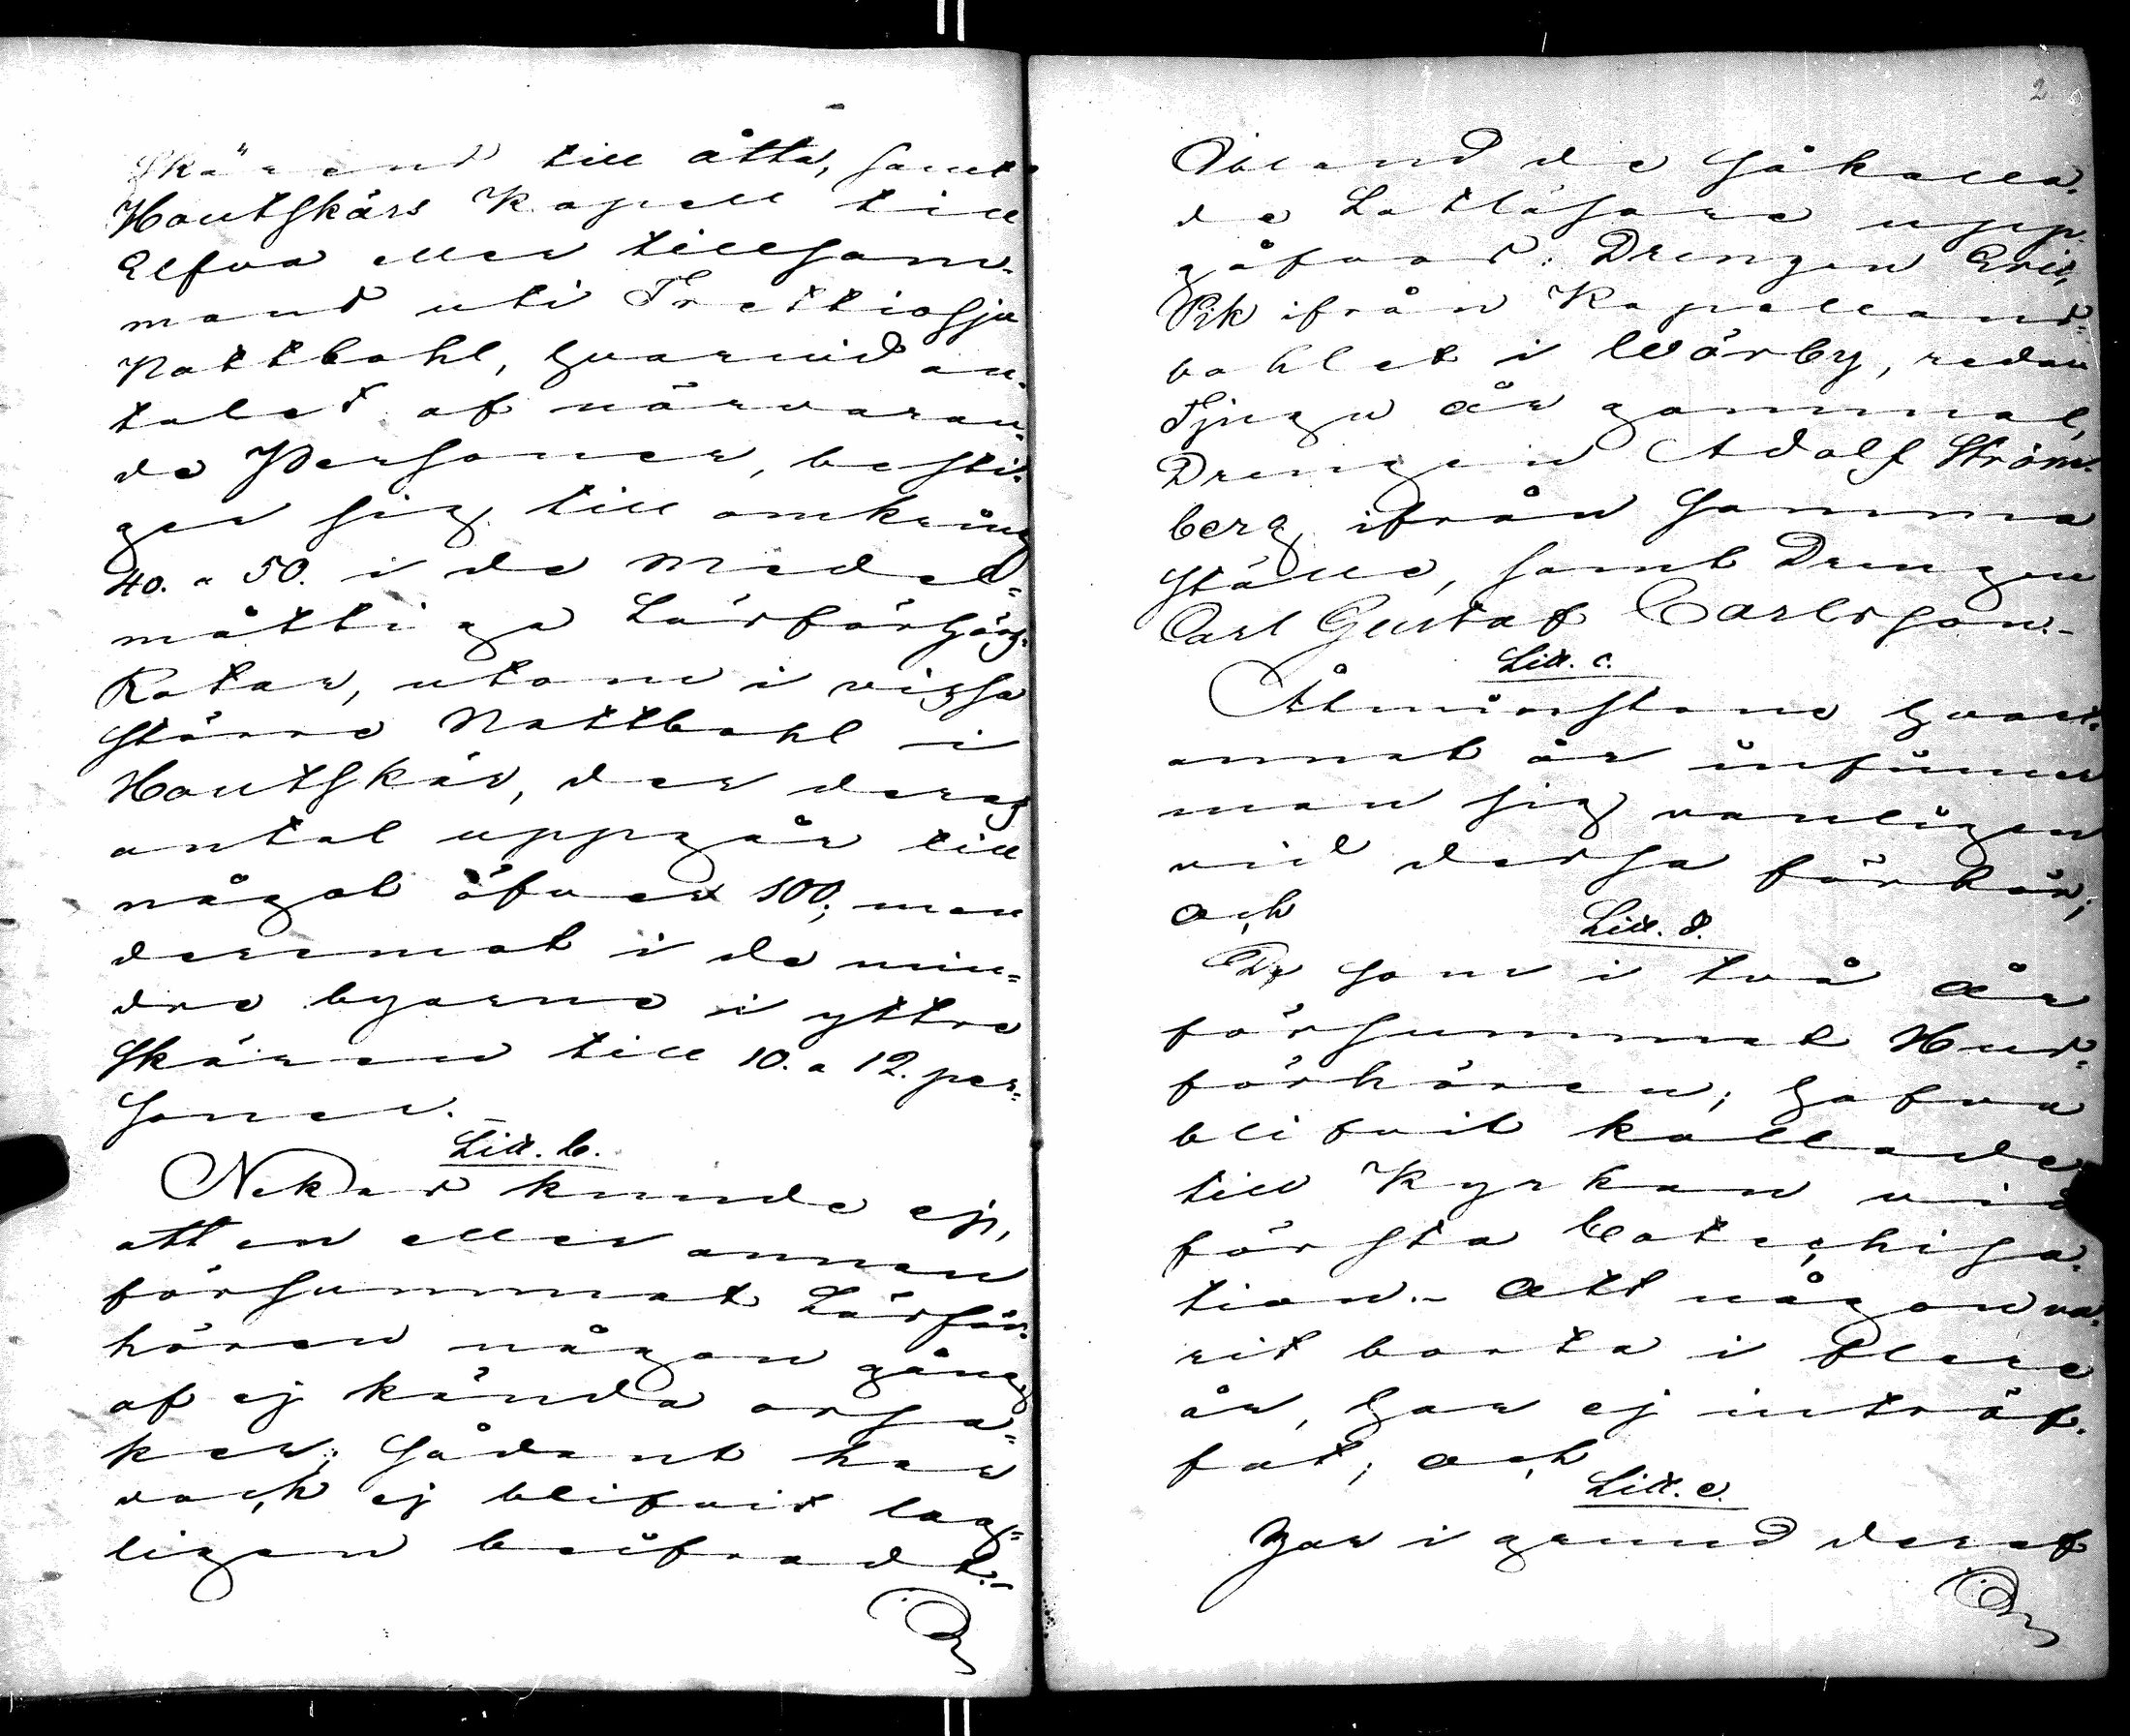 Skärens till åtta, samt
Houtskärs Kapell till
Elfva eller tillsam-
mans uti Trettiosju
Nattbohl, hvarvid an-
talet af närvaran-
de Personer, besti-
ger sig till omkring
40. a 50. i de medel-
måttiga Läsförhörs-
Rotar, utom i vissa
större Nattbohl i
Houtskär, der deras
antal uppgår till
något öfver 100; men
deremot i de min-
dre byarne i yttre
Skären till 10. a 12. per-
soner.
Litt. b.
Nekas kunde ej,
att en eller annan
försummat Läsför-
hören någon gång
af ej kända orsa-
ker; sådant har
dock ej blifvit lag-
ligen beifradt.-
2
Ibland de såkalla-
de Lattläsare upp-
gåfvos: Drengen Eric
Pik ifrån Kapellans-
bohlet i Wärby, redan
Tjugu år gammal,
Drengen Adolf Ström-
berg ifrån samma
ställe, samt Drengen
Carl Gustaf Carlsson.-
Litt. c.
Åtminstone hvart-
annat år infinner
man sig vanligen
vid dessa förhör;
och
Litt. d.
De som i två år
försummat Hus-
förhören, hafva
blifvit kallade
till Kyrkan vid
första Catechisa-
tion.- Att någon va-
rit borta i flere
år, har ej inträf-
fat; och
Litt. e.
Har i grund deraf